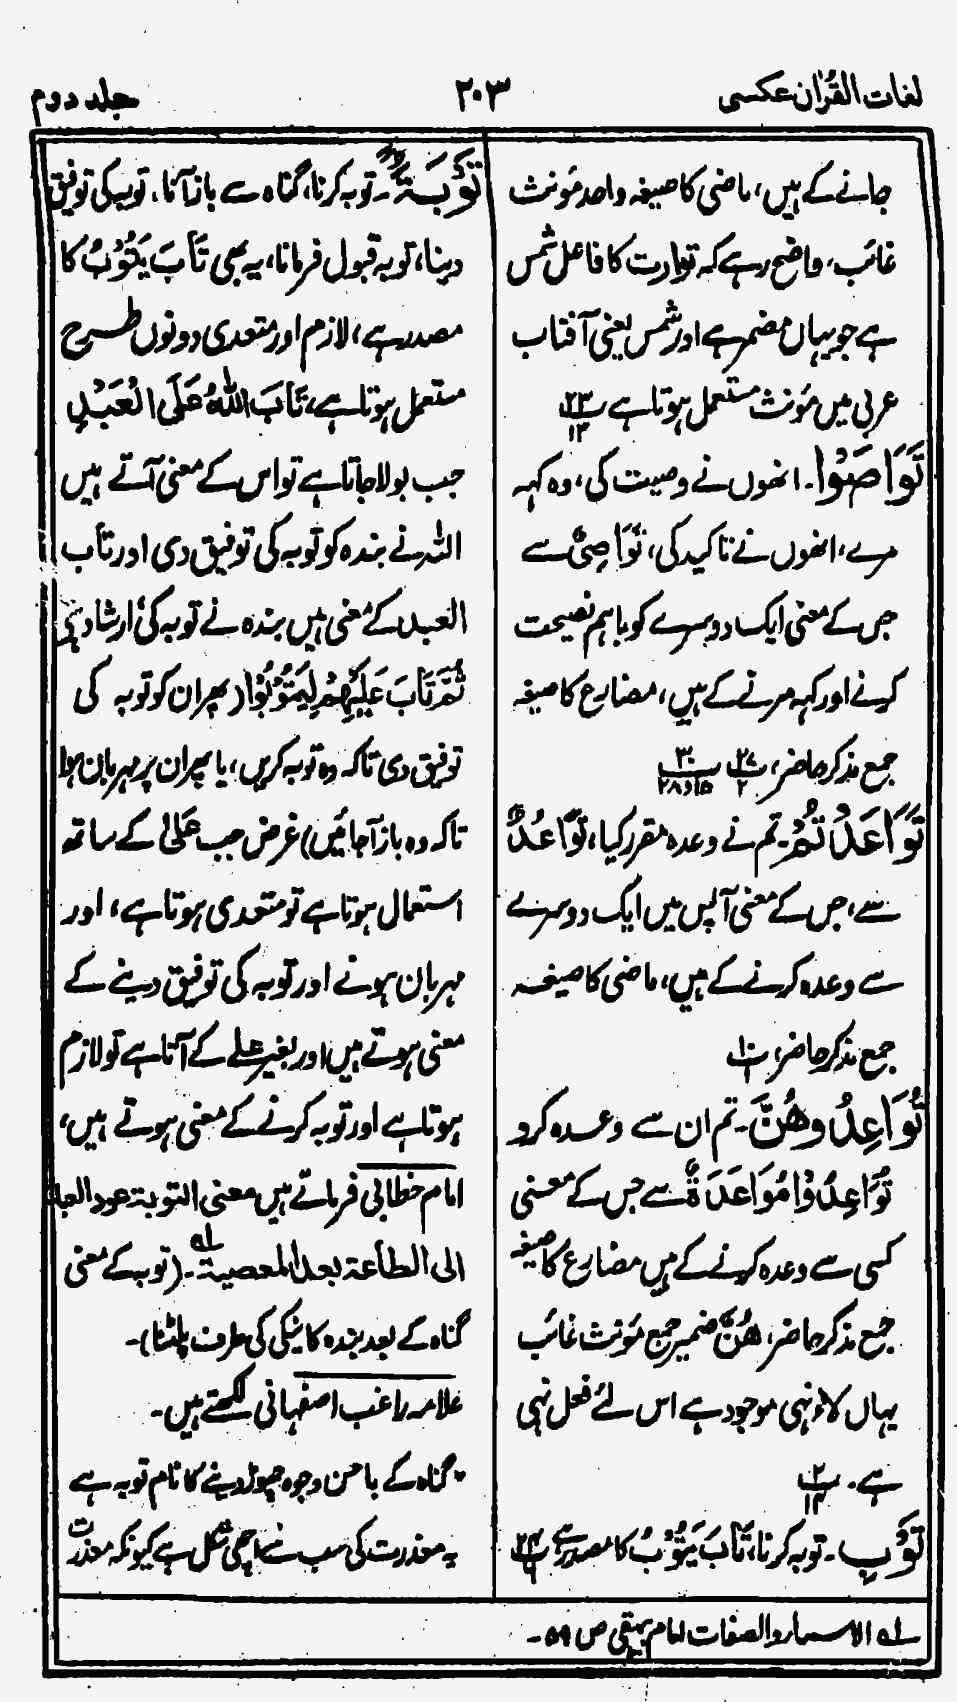 لغات القرآن عکسی
۲۰۳
جلد دوم
جانے کے ہیں، ماضی کا صیغہ واحد مؤنث
غائب، واضح رہے کہ توارت کا فاعل شمس
ہے جو یہاں مضمر ہے اور شمس یعنی آفتاب
عربی میں مؤنث مستعمل ہوتا ہے ۲۳/۱۲
تَوَاصَوْا۔ انھوں نے وصیت کی، وہ کہہ
مرے، انھوں نے تاکید کی، تَوَاصِیْ سے
جس کے معنی ایک دوسرے کو باہم نصیحت
کرنے اور کہہ مرنے کے ہیں، مضارع کا صیغہ
جمع مذکر حاضر، پ ۲۷/۲ پ ۳۰/۲۸و۱۵
تَوَاعَدْتُّمْ۔ تم نے وعدہ مقرر کیا، تَوَاعُدٌ
سے، جس کے معنی آپس میں ایک دوسرے
سے وعدہ کرنے کے ہیں، ماضی کا صیغہ
جمع مذکر حاضر، پ ۱۰/۱
تُوَاعِدُوهُنَّ۔ تم ان سے وعدہ کرو
تُوَاعِدُوْا مُوَاعَدَةٌ سے جس کے معنی
کسی سے وعدہ کرنے کے ہیں مضارع کا صیغہ
جمع مذکر حاضر، هُنَّ ضمیر جمع مؤنث غائب
یہاں لاء نہی موجود ہے اس لئے فعل نہی
ہے۔ پ ۲/۱۴
تَوْبِ۔ توبہ کرنا، تَابَ یَتُوْبُ کا مصدر ہے
تَوْبَةً۔ توبہ کرنا، گناہ سے باز آنا، توبہ کی توفیق
دینا، توبہ قبول فرمانا، یہ بھی تَابَ یَتُوْبُ کا
مصدر ہے، لازم اور متعدی دونوں طرح
مستعمل ہوتا ہے، تَابَ اللّٰهُ عَلَی الْعَبْدِ
جب بولا جاتا ہے تو اس کے معنی آتے ہیں
اللہ نے بندہ کو توبہ کی توفیق دی اور تاب
العبد کے معنی ہیں بندہ نے توبہ کی ارشاد ہے
ثُمَّ تَابَ عَلَیْهِمْ لِیَتُوْبُوْا (پھر ان کو توبہ کی
توفیق دی تاکہ وہ توبہ کریں، یا پھر ان پر مہربان ہوا
تاکہ وہ باز آجائیں) غرض جب عَلٰی کے ساتھ
استعمال ہوتا ہے تو متعدی ہوتا ہے، اور
مہربان ہونے اور توبہ کی توفیق دینے کے
معنی ہوتے ہیں اور بغیر علے کے آتا ہے تو لازم
ہوتا ہے اور توبہ کرنے کے معنی ہوتے ہیں،
امام خطابی فرماتے ہیں معنی التوبۃ عود العبد
الی الطاعۃ بعد المعصیۃ لہ۔ (توبہ کے معنی
گناہ کے بعد بندہ کا نیکی کی طرف پلٹنا)۔
علامہ راغب اصفہانی لکھتے ہیں۔
" گناہ کے باحسن وجوہ چھوڑ دینے کا نام توبہ ہے
یہ معذرت کی سب سے اچھی شکل ہے کیونکہ معذرت
لہ الاسماء والصفات امام بیہقی ص ۵۹۔